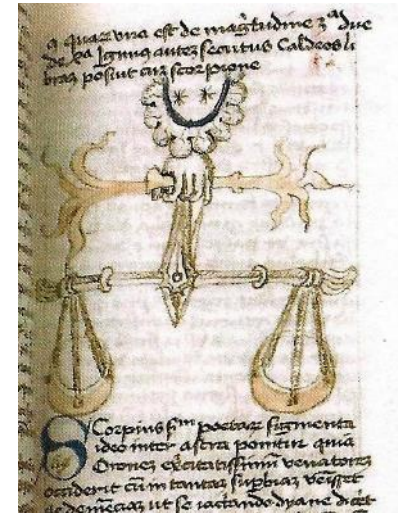 quar una est de magitudine 3ᵃ due
de xᵃ Iginus autez secutus Caldeos li
bras posuit cuz scorpione
SCorpius sᵐ poetar figmenta
ideo inter astra ponitur quia
Oriones excitatissimu venatores
occiderit cu in tantaz supbiaz veisset
ut se iactando dyane dicet